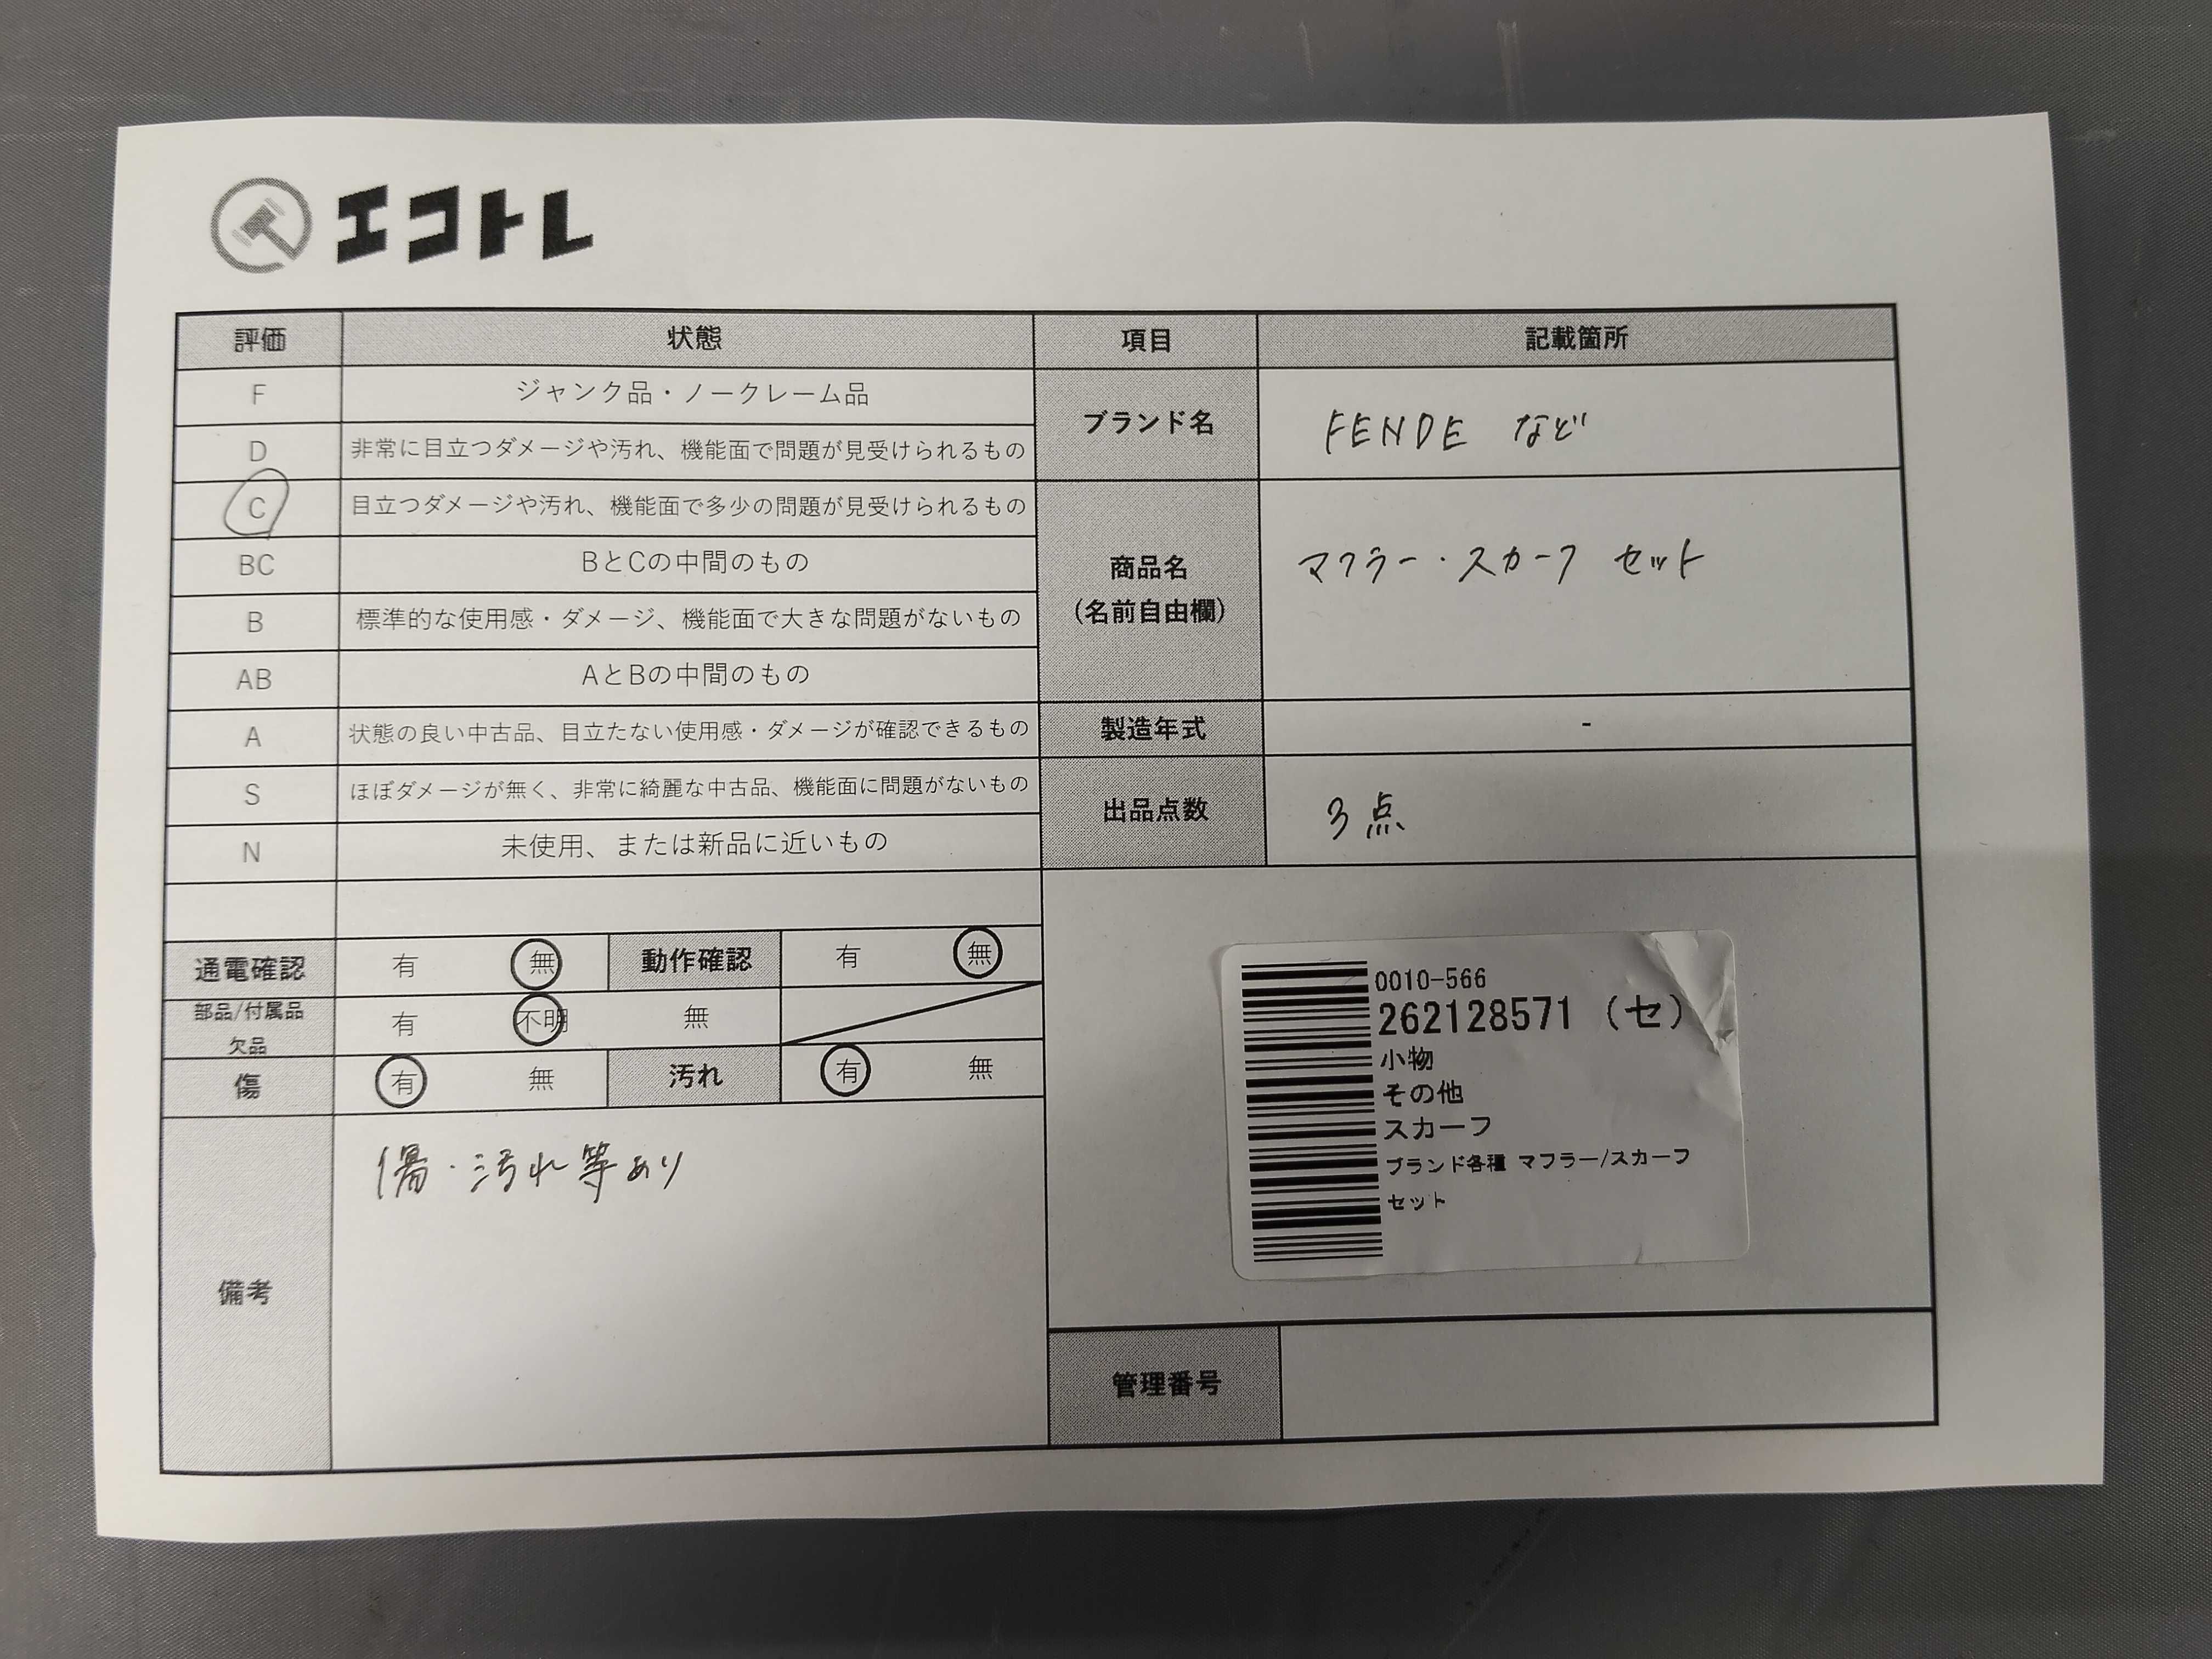 エコトレ
評価 状態 項目 記載箇所
F ジャンク品・ノークレーム品
D 非常に目立つダメージや汚れ、機能面で問題が見受けられるもの
C 目立つダメージや汚れ、機能面で多少の問題が見受けられるもの
BC BとCの中間のもの
B 標準的な使用感・ダメージ、機能面で大きな問題がないもの
AB AとBの中間のもの
A 状態の良い中古品、目立たない使用感・ダメージが確認できるもの
S ほぼダメージが無く、非常に綺麗な中古品、機能面に問題がないもの
N 未使用、または新品に近いもの
ブランド名 FENDE など
商品名
(名前自由欄)
マフラー・スカーフ セット
製造年式 -
出品点数 3点
通電確認 有 無 動作確認 有 無
部品/付属品
欠品
有 不明 無
傷 有 無 汚れ 有 無
備考
傷・汚れ等あり
0010-566
262128571 (セ)
小物
その他
スカーフ
ブランド各種 マフラー/スカーフ
セット
管理番号